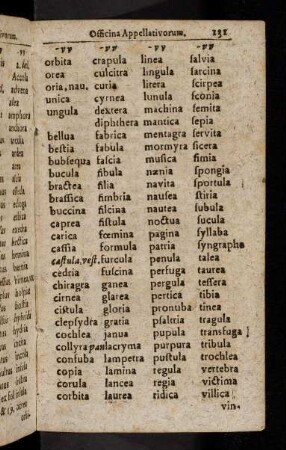 Officina Appellativorum. 231
-υυ -υυ -υυ -υυ
orbita crapula linea salvia
orea culcitra lingula sarcina
oria, nau, cutia litera scirpea
unica cyrnea lunula sconia
ungula dextera machina semita
diphthera mantica sepia
bellua fabrica mentagra servita
bestia fabula mormyra sicera
bubsequa fascia musica simia
bucula fibula nænia spongia
bractea filia navita sportula
brassica fimbria nausea stiria
buccina filcina nautea subula
caprea fistula noctua sucula
carica fœmina pagina syllaba
cassia formula patria syngrapha
castula, vest, furcula penula talea
cedria fuscina perfuga taurea
chiragra ganea pergula tessera
cirnea glarea pertica tibia
cistula gloria pronuba tinea
clepsydra gratia psaltria tragula
cochlea janua pupula transfuga
collyra pan lacryma purpura tribula
consuba lampetra pustula trochlea
copia lamina regula vertebra
corula lancea regia victima
corbita laurea ridica villica
vin-